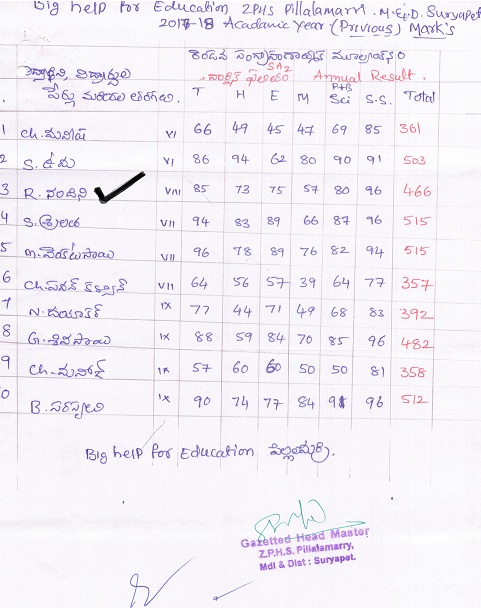 Big help for Education ZPHS Pillalamarri. M&D. Suryapet
2017-18 Acadamic Year (Previous) Mark's
SA2
Annual Result.
T H E M P+B Sci S.S. Total
1 Ch. మనీష VI 66 49 45 47 69 85 361
2 S. ఉమ VI 86 94 62 80 90 91 503
3 R. నందిని VIII 85 73 75 57 80 96 466
4 S. శ్రీలత VII 94 83 89 66 87 96 515
5 VII 96 78 89 76 82 94 515
6 Ch. పవన్ కళ్యాణ్ VII 64 56 57 39 64 77 357
7 N. దయాకర్ IX 77 44 71 49 68 83 392
8 G. శివసాయి IX 88 59 84 70 85 96 482
9 Ch. మనోజ్ IX 57 60 60 50 50 81 358
0 B. IX 90 74 77 84 91 96 512
Big help for Education పిల్లలమర్రి.
Gazetted Head Master
Z.P.H.S. Pillalamarry,
Mdl & Dist : Suryapet.